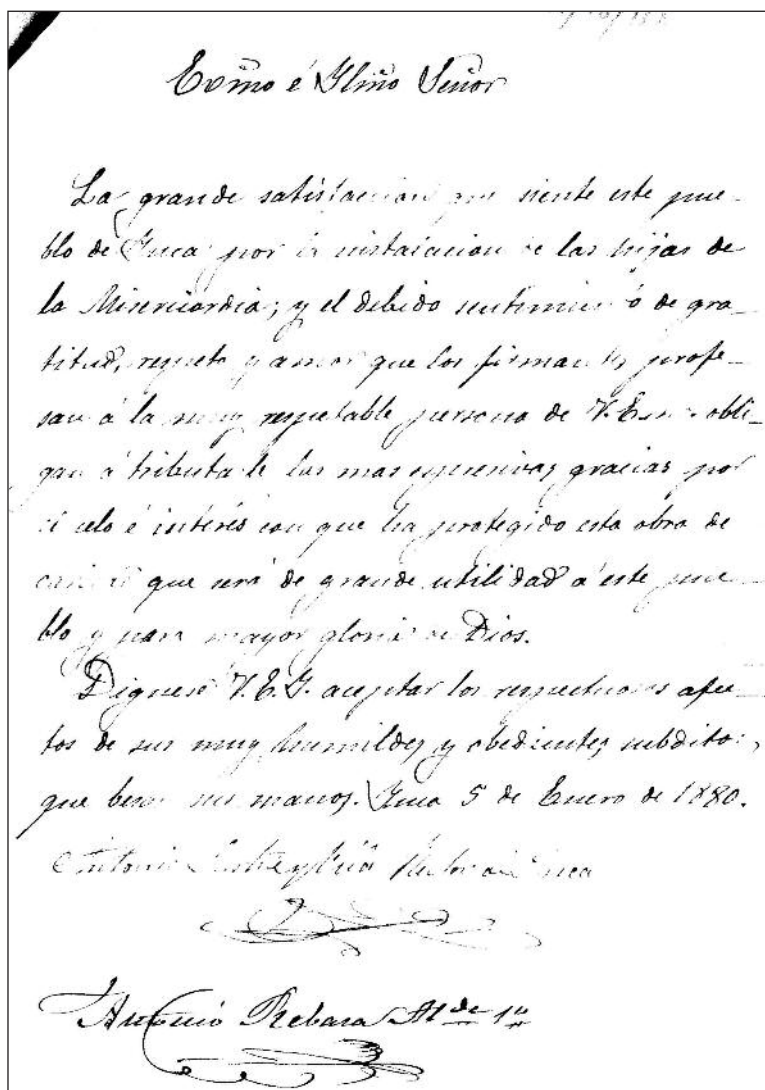 Exmo é Ylmo Señor
La grande satisfaccion que siente este pue-
blo de Ynca por la instalacion de las hijas de
la Misericordia; y el debido sentimiento de gra-
titud, respeto y amor que los firmantes profe-
san á la muy respetable persona de V.E. obli-
gan á tributarle las mas expresivas gracias por
el celo é interés con que ha protegido esta obra de
caridad que será de grande utilidad á este pue-
blo y para mayor gloria de Dios.
Dignese V.E.Y. aceptar los respetuosos afec-
tos de sus muy humildes y obedientes subditos,
que besan sus manos. Ynca 5 de Enero de 1880.
Antonio Rector de Ynca
Antonio Rebasa Alde 1º